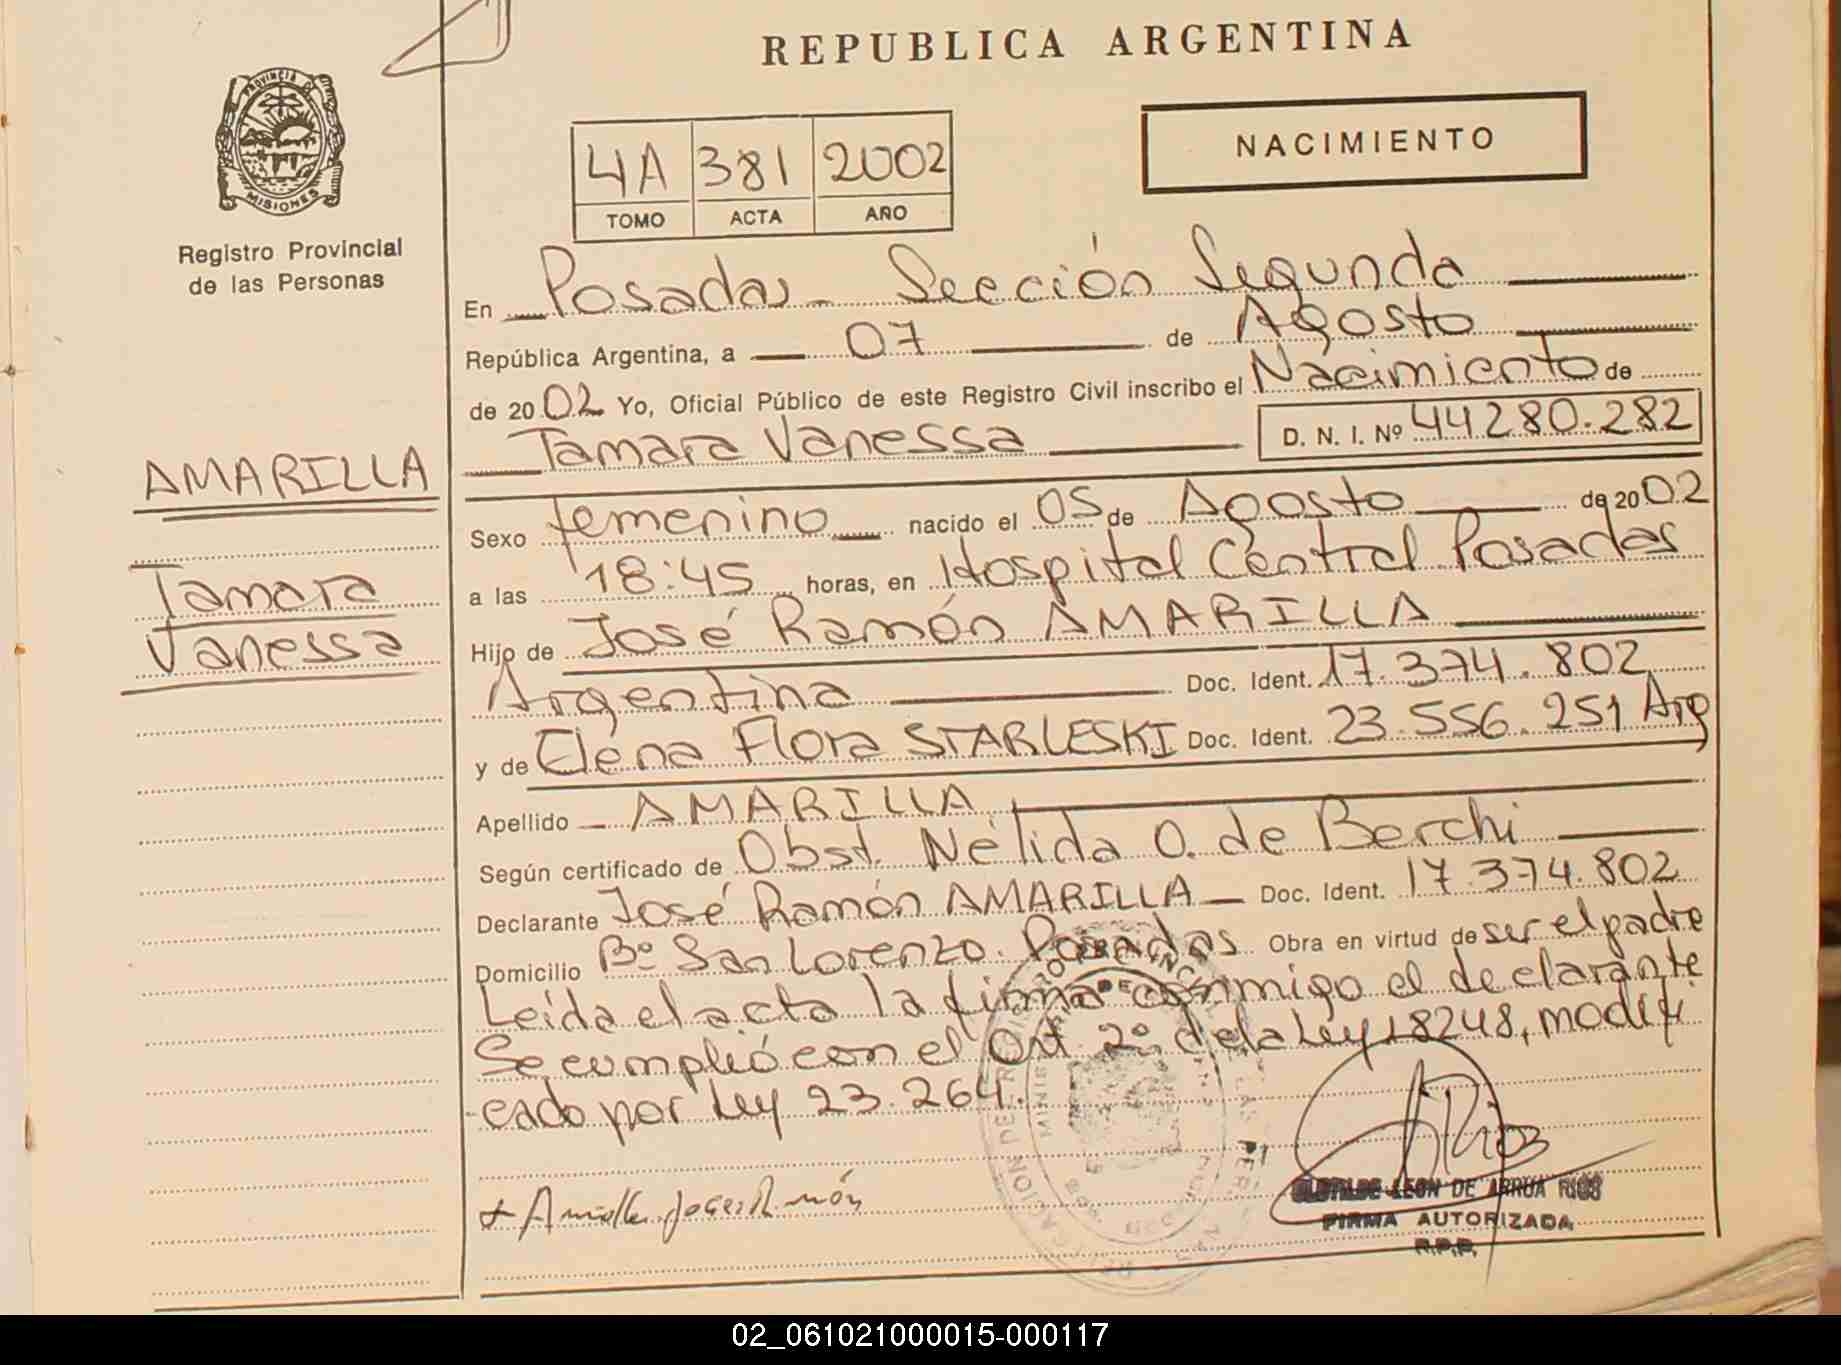 REPUBLICA ARGENTINA
PROVINCIA DE MISIONES
Registro Provincial
de las Personas
4A 381 2002
TOMO ACTA AÑO
NACIMIENTO
En Posadas - Sección Segunda
República Argentina, a 07 de Agosto
de 2002 Yo, Oficial Público de este Registro Civil inscribo el Nacimiento de
Tamara Vanessa D. N. I. Nº 44280.282
AMARILLA
Tamara
Vanessa
Sexo femenino nacido el 05 de Agosto de 2002
a las 18:45 horas, en Hospital Central Posadas
Hijo de José Ramón AMARILLA
Argentina Doc. Ident. 17.374.802
y de Elena Flora STARLESKI Doc. Ident. 23.556.251 Arg
Apellido AMARILLA
Según certificado de Obst. Nélida O. de Berchi
Declarante José Ramón AMARILLA Doc. Ident. 17.374.802
Domicilio Bº San Lorenzo. Posadas Obra en virtud de ser el padre
Leída el acta la firma conmigo el declarante
Se cumplió con el Art. 2º de la Ley 18248, modifi
cado por Ley 23.264.
+ Amarilla José Ramón
LEON DE ARRUA RIOS
FIRMA AUTORIZADA
R.P.P.
02_061021000015-000117